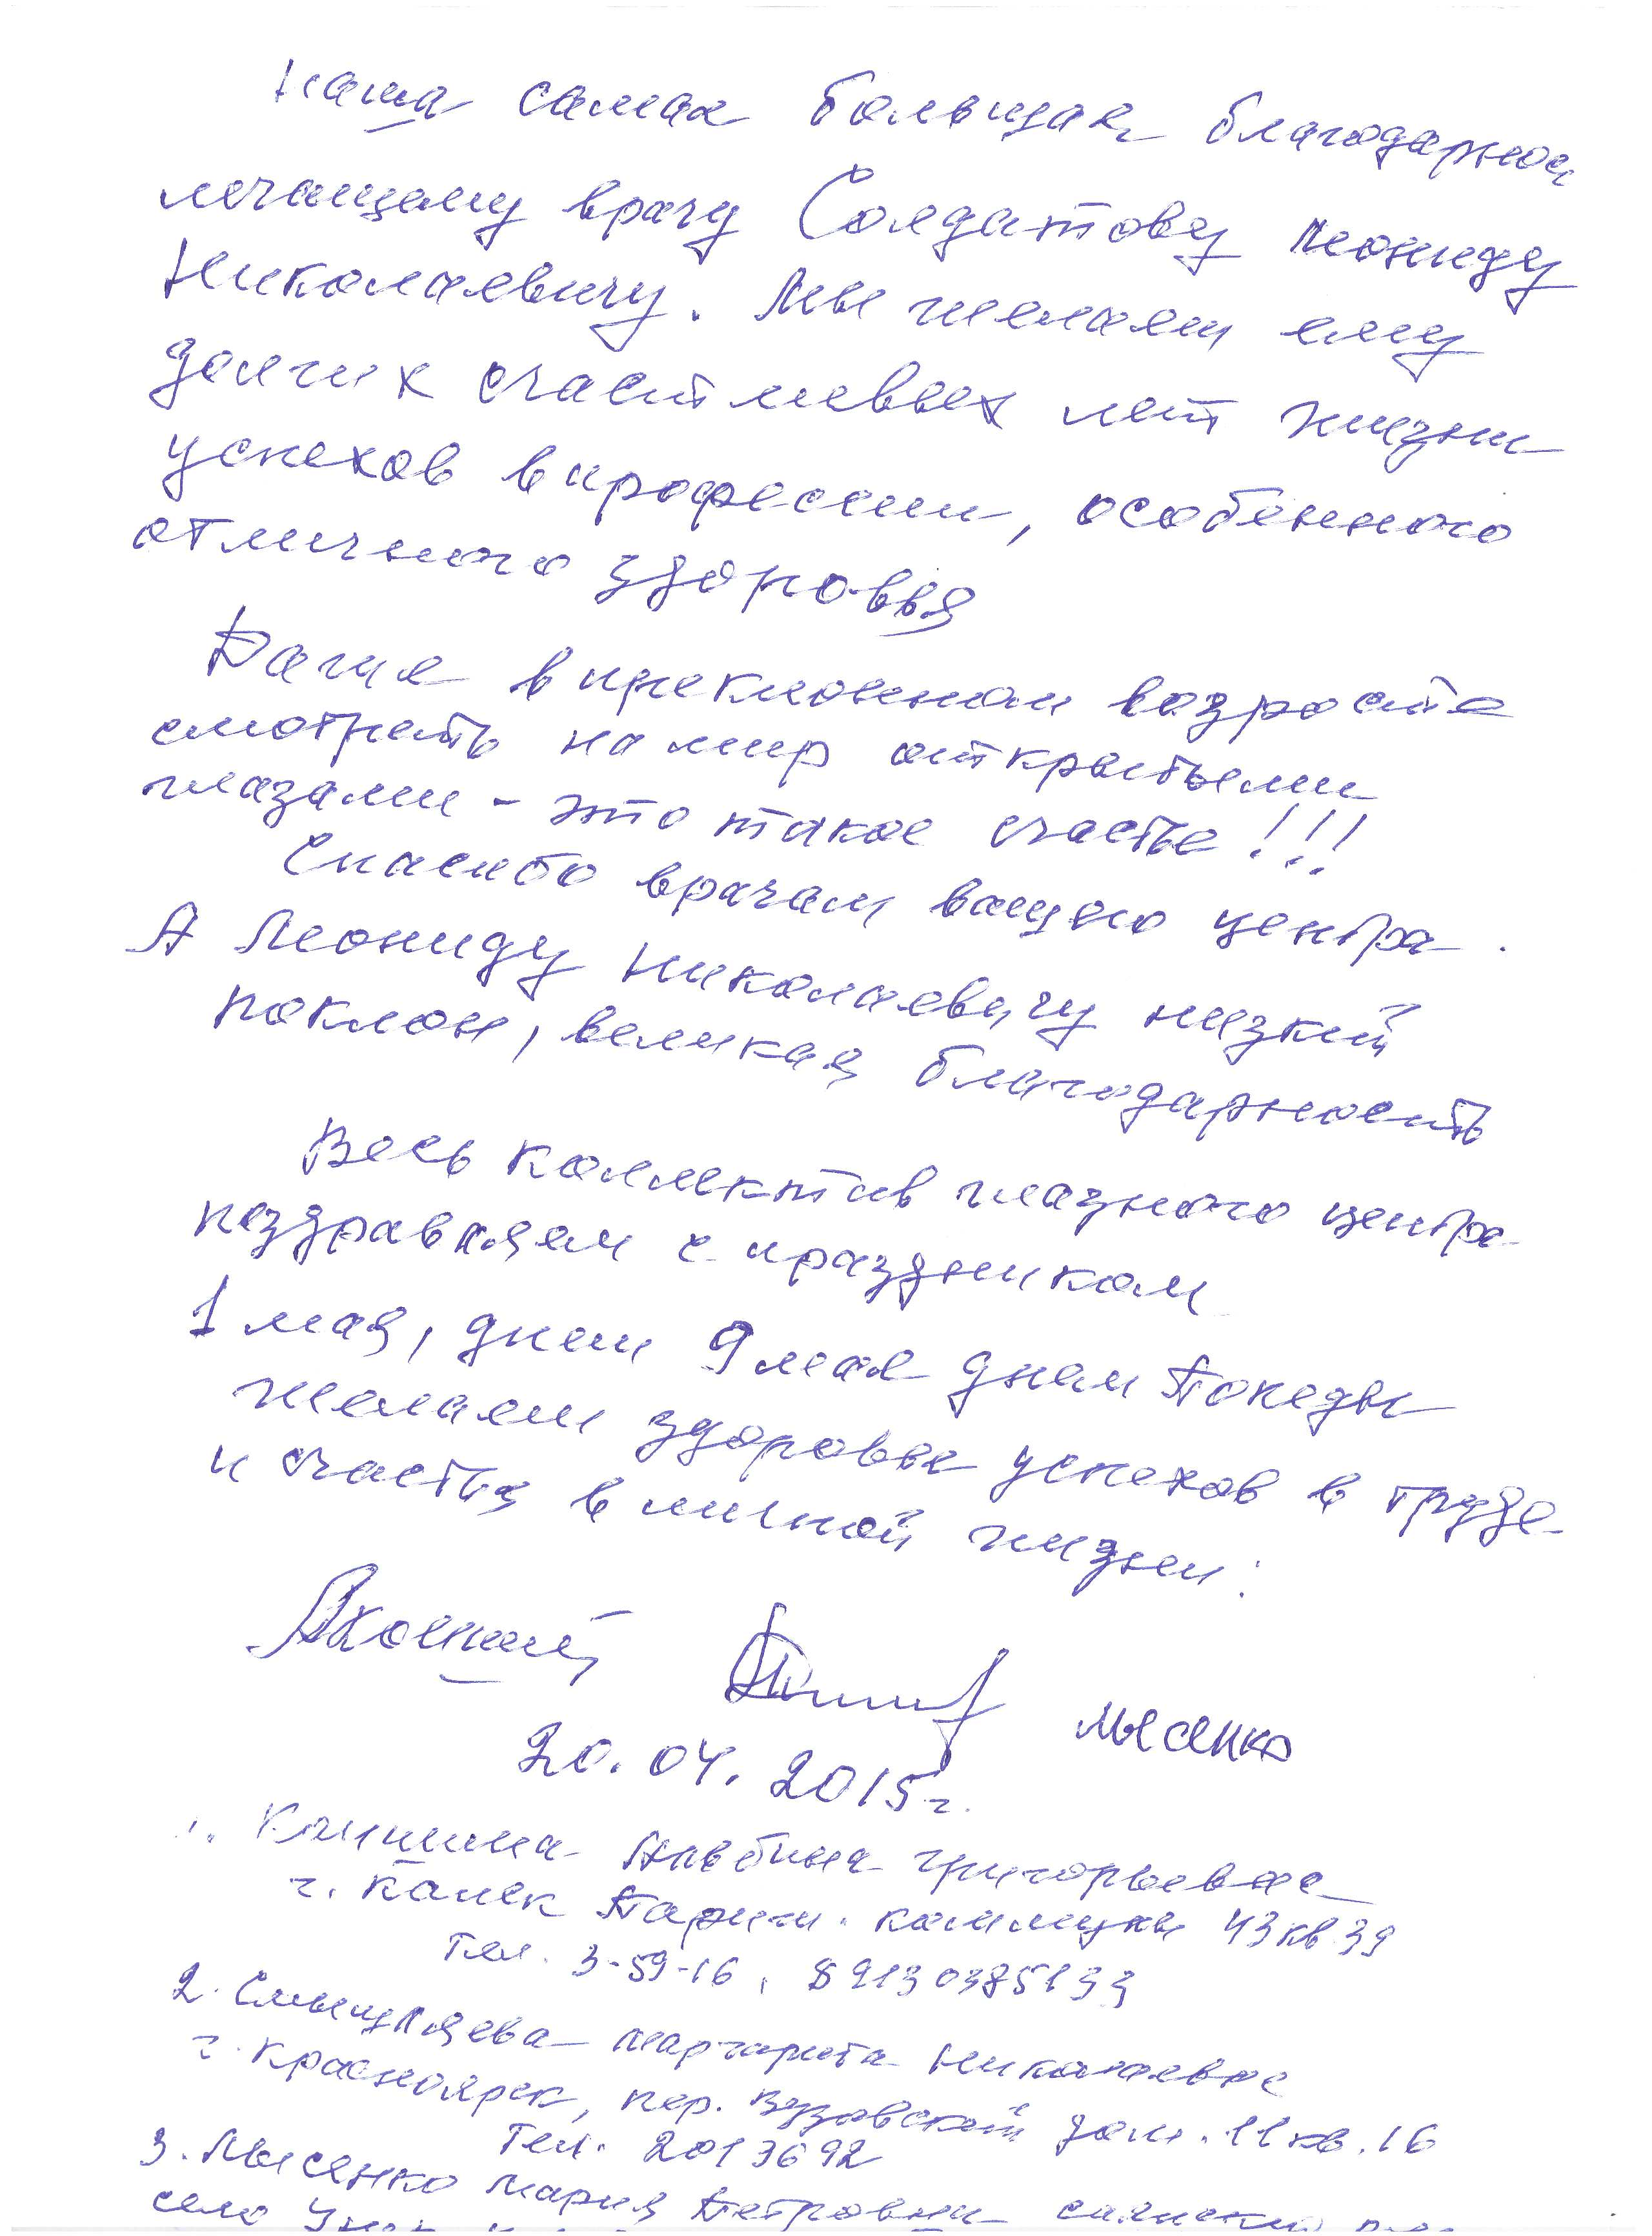 Наша самая большая благодарнос
лечащему врачу Солдатову Леониду
Николаевичу. Мы желаем ему
долгих счастливых лет жизни
успехов в профессии, особенного
отличного здоровья
Даже в преклонном возрасте
смотреть на мир открытыми
глазами - это такое счастье!!!
Спасибо врачам вашего центра.
А Леониду Николаевичу низкий
поклон, великая благодарность
Весь коллектив глазного центра
поздравляем с праздником
1 мая, днем 9 мая днем Победы
желаем здоровья успехов в труде
и счастья в личной жизни.
Лысенко
20.04.2015г.
1. Григорьевна
г. Канск Париж. коммуны 43 кв 39
Тел. 3-59-16, 89130385133
2. Смышляева Маргарита Николаевна
г. Красноярск, пер. Вузовский дом. 11 кв. 16
Тел. 2013692
3. Лысенко Мария Петровна Саянский
село